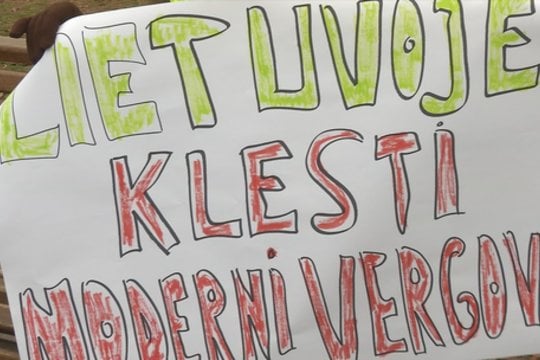 LIETUVOJE
KLESTI
MODERNi VERGOV